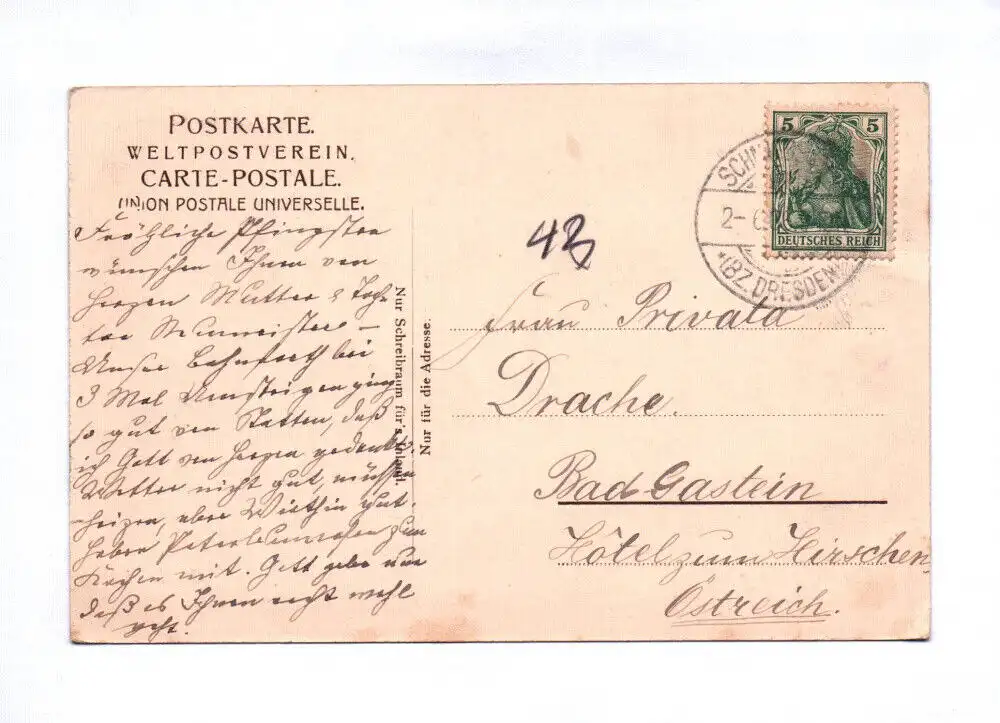 POSTKARTE.
WELTPOSTVEREIN.
CARTE-POSTALE.
UNION POSTALE UNIVERSELLE.
Fröhliche Pfingsten
wünschen Ihnen von
Herzen Mutter & Toch-
ter
Unser Bahnfahrt bei
3 Mal Umsteigen ging
so gut von Statten, daß
ich Gott von Herzen gedankt.
Wetter nicht gut, müssen
heizen, aber Wirthin gut.
haben zum
Kochen mit. Gott gebe nun
daß es Ihnen recht wohl
geht.
Nur Schreibraum für's Inland.
Nur für die Adresse.
43
5 5
DEUTSCHES REICH
SCHM
2- 6
*(BZ. DRESDEN)
Frau Privata
Drache.
Bad Gastein
Hôtel zum Hirschen
Östreich.